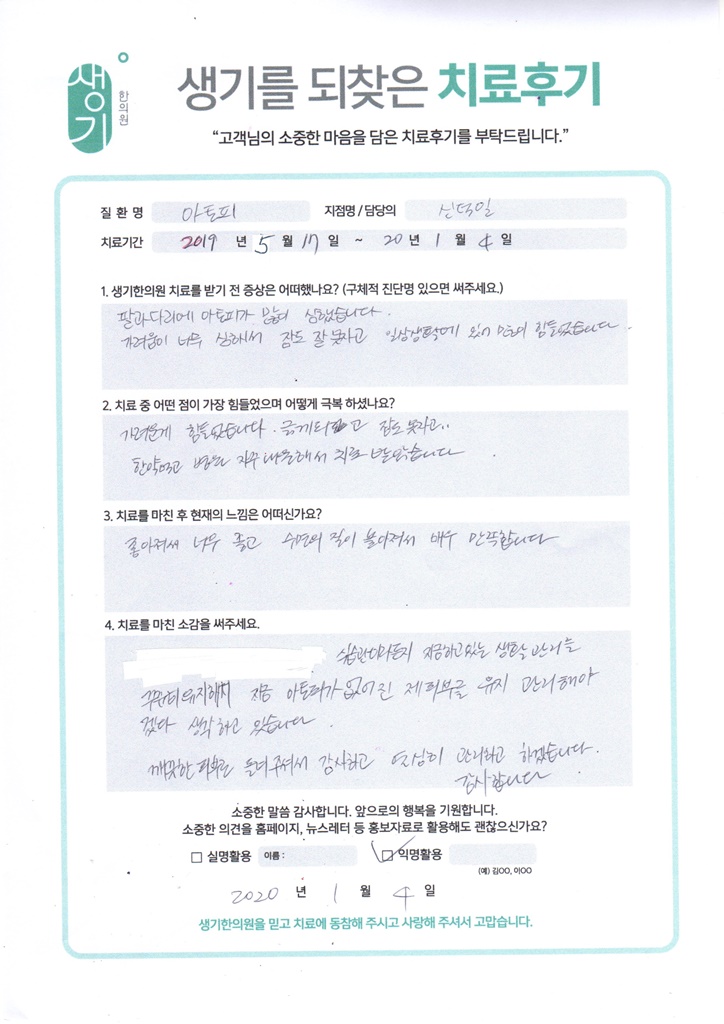 생기
한의원
생기를 되찾은 치료후기
“고객님의 소중한 마음을 담은 치료후기를 부탁드립니다.”
질 환 명 아토피 지점명 / 담당의 신덕일
치료기간 2019 년 5 월 17 일 ~ 20 년 1 월 4 일
1. 생기한의원 치료를 받기 전 증상은 어떠했나요? (구체적 진단명 있으면 써주세요.)
팔과 다리에 아토피가 많이 심했었습니다.
가려움이 너무 심해서 잠도 잘 못자고 일상생활에 있어 많이 힘들었습니다.
2. 치료 중 어떤 점이 가장 힘들었으며 어떻게 극복 하셨나요?
가려운게 힘들었습니다. 긁게되고 잠도 못자고..
한약먹고 병원 자주 내원해서 치료 받았습니다.
3. 치료를 마친 후 현재의 느낌은 어떠신가요?
좋아져서 너무 좋고 수면의 질이 높아져서 매우 만족합니다
4. 치료를 마친 소감을 써주세요.
습관이라든지 지금하고있는 생활 관리를
꾸준히 유지해서 지금 아토피가 없어진 제피부를 유지 관리해야
겠다 생각하고 있습니다.
깨끗한 피부로 돌려주셔서 감사하고 열심히 관리하고 하겠습니다.
감사합니다
소중한 말씀 감사합니다. 앞으로의 행복을 기원합니다.
소중한 의견을 홈페이지, 뉴스레터 등 홍보자료로 활용해도 괜찮으신가요?
□ 실명활용 이름 : □ 익명활용
(예) 김OO, 이OO
2020 년 1 월 4 일
생기한의원을 믿고 치료에 동참해 주시고 사랑해 주셔서 고맙습니다.